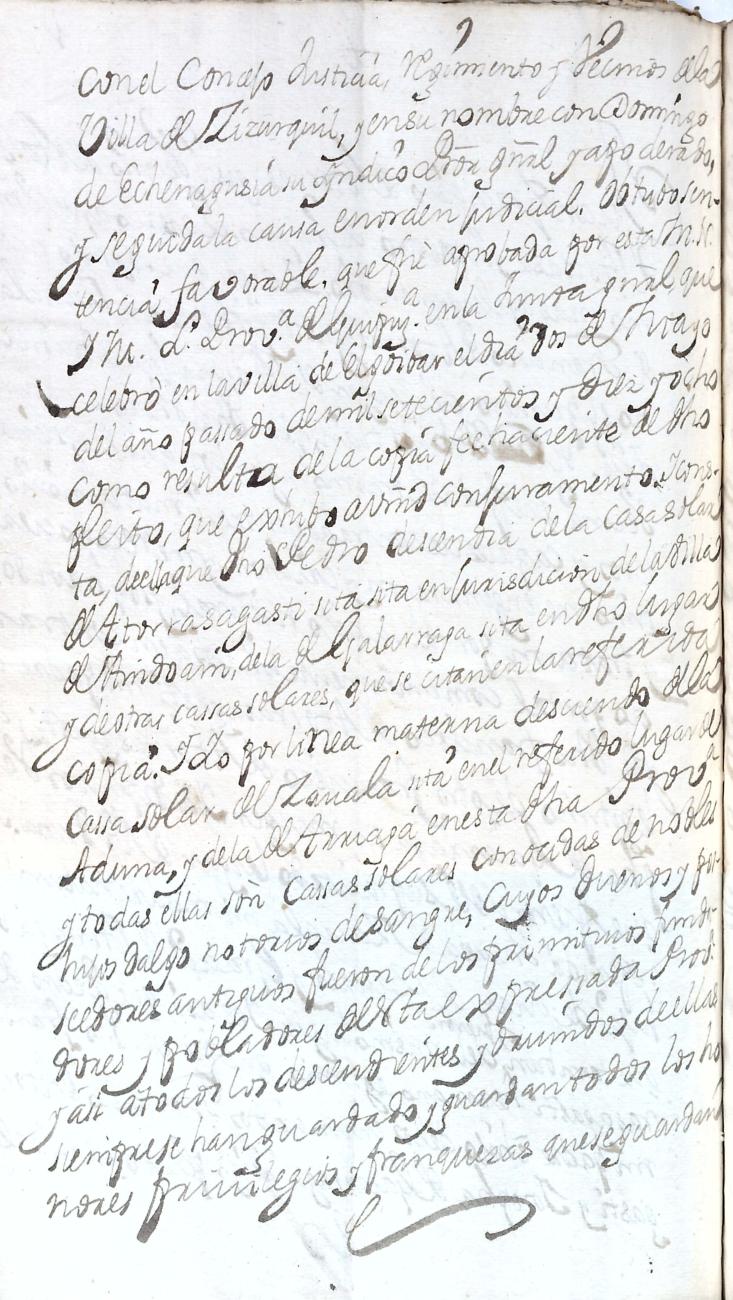 con el Concejo Justicia, regimiento y Vecinos de la
Villa de Zizurquil, y en su nombre con Domingo
de Echenagusia su sindico Pror gñal y apoderado,
y seguida la causa en orden judicial. Obtubo sen-
tencia favorable, que fue aprobada por esta M. N.
y M. L. Prov.a de Guipuz.a en la Junta gñal, que
celebro en la villa de Elgoibar el dia dos de Mayo
del año passado de mil setecientos y diez y ocho
como resulta de la copia feehaciente de dho
pleito, que exsivo a vmd con juramento. Y cons-
ta, de ella que dho Pedro descendia de la casa solar
de Atorrasagasti sita en Jurisdicion de la Villa
de Andoain, de la de Galarraga sita en dho lugar
y de otras cassas solares, que se citan en la referida
copia. Y Yo por linea materna desciendo de la
Cassa solar de Zavala sita en el referido lugar de
Aduna, y de la de Arriaga en esta dha Prova
y todas ellas son Cassas solares conocidas de nobles
hijos dalgo notorios de sangre, Cuyos dueños y po-
seedores antiguos fueron de los primitivos funda-
dores y pobladores de esta expressada Prov.a
y asi a todos los descendientes y oriundos de ellas
siempre se han guardado y guardan todos los ho
nores privilegios y franquezas que se guardan